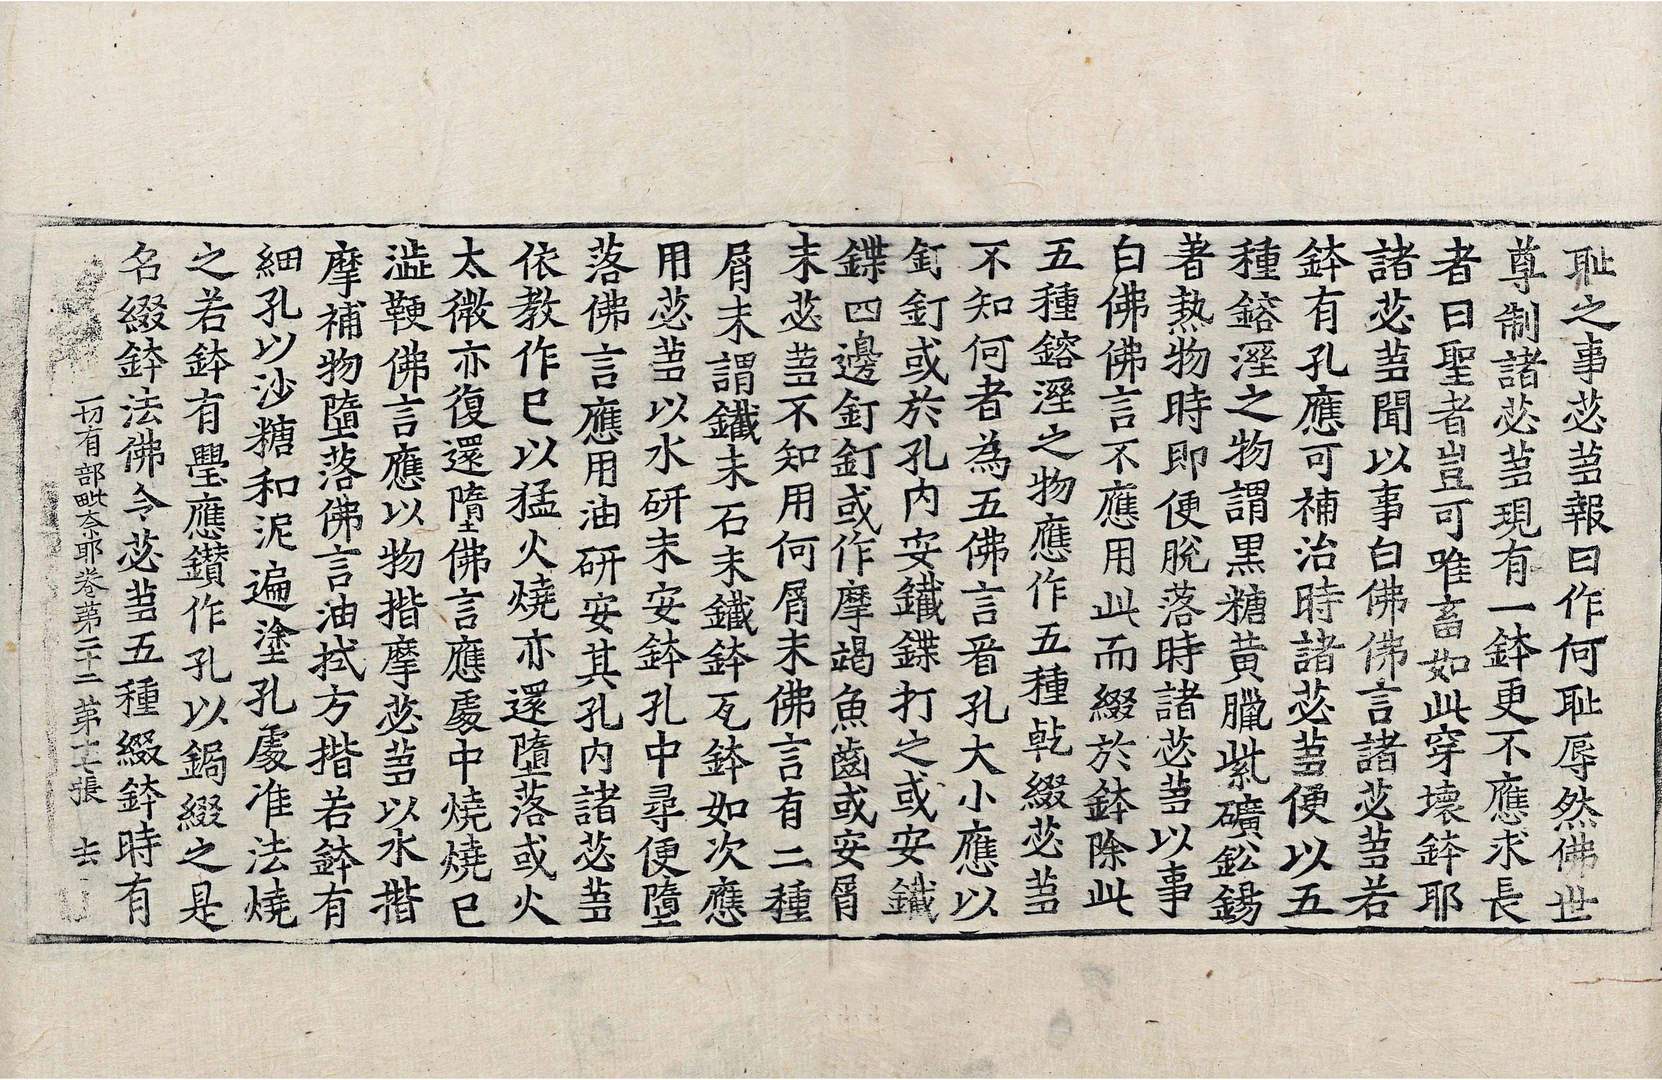 耻之事苾蒭報曰作何耻辱然佛世
尊制諸苾蒭現有一鉢更不應求長
者曰聖者豈可唯畜如此穿壞鉢耶
諸苾蒭聞以事白佛佛言諸苾蒭若
鉢有孔應可補治時諸苾蒭便以五
種鎔溼之物謂黑糖黃臘紫礦鈆錫
著熱物時即便脫落時諸苾蒭以事
白佛佛言不應用此而綴於鉢除此
五種鎔溼之物應作五種乾綴苾蒭
不知何者為五佛言㸔孔大小應以
釘釘或於孔內安鐵鍱打之或安鐵
鍱四邊釘釘或作摩竭魚齒或安屑
末苾蒭不知用何屑末佛言有二種
屑末謂鐵末石末鐵鉢瓦鉢如次應
用苾蒭以水研末安鉢孔中尋便墮
落佛言應用油研安其孔內諸苾蒭
依教作已以猛火燒亦還墮落或火
太微亦復還墮佛言應處中燒燒已
澁鞕佛言應以物揩摩苾蒭以水揩
摩補物墮落佛言油拭方揩若鉢有
細孔以沙糖和泥遍塗孔處准法燒
之若鉢有璺應鑽作孔以鋦綴之是
名綴鉢法佛令苾蒭五種綴鉢時有
一切有部毗奈耶卷第二十二 第十七張 去